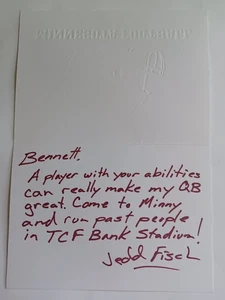 Bennett,
A player with your abilities
can really make my QB
great. Come to Minny
and run past people
in TCF Bank Stadium!
Jedd Fisch